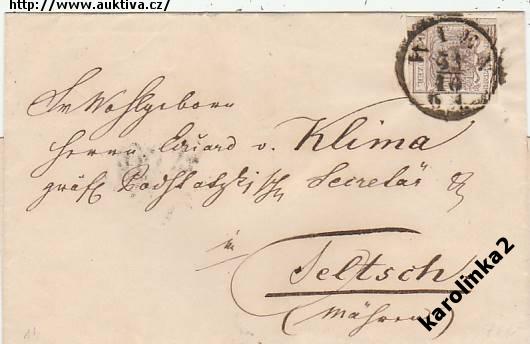 http://www.auktiva.cz/
WIEN
Sr Wohlgeborn
Herrn Eduard v. Klima
gräfl Podstatzkj'sch Secretär &
in
Teltsch
(Mähren)
karolinka2